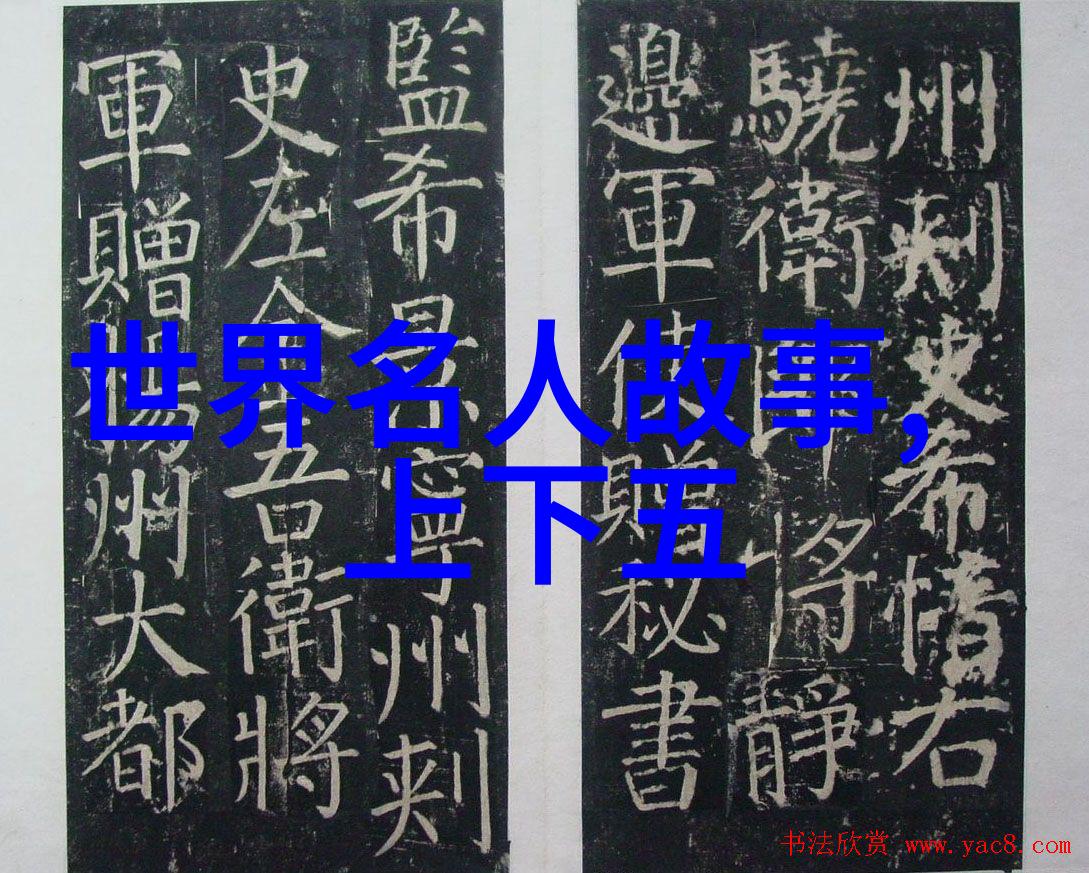 世界名人故事,
上下五
州刺史希愔右
驍衛將靜
邊軍使贈秘書
監希景寧州刺
史左金吾衛將
軍贈揚州大都
书法欣赏 www.yac8.com